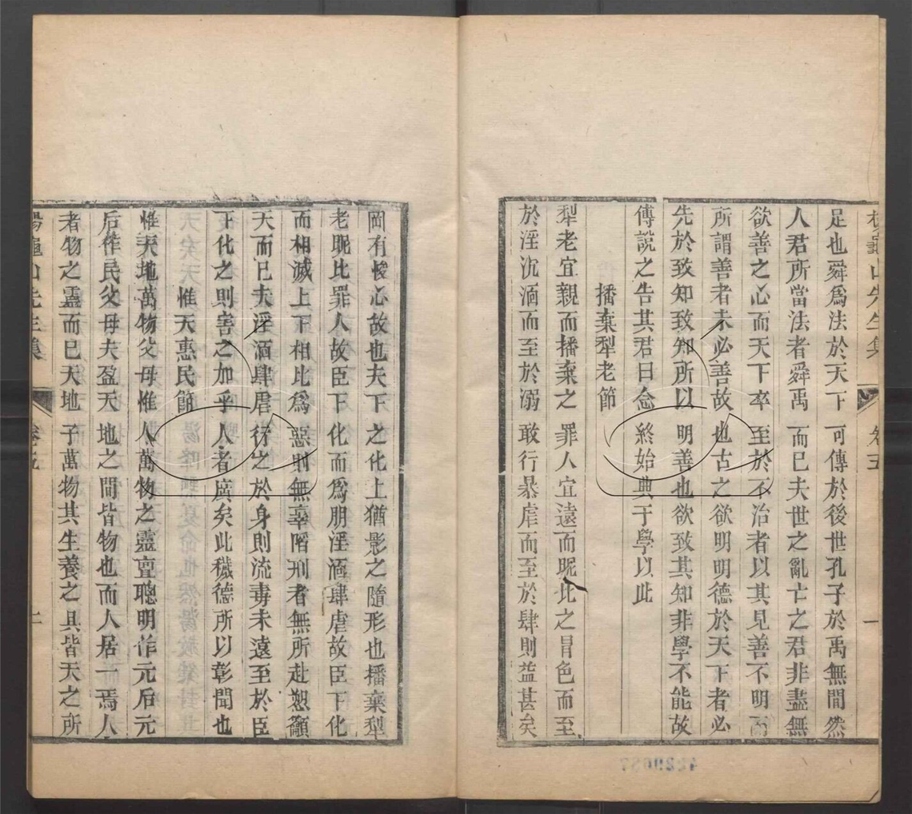 楊龜山先生集 卷五 一
足也舜爲法於天下可傳於後世孔子於禹無間然
人君所當法者舜禹而已夫世之亂亡之君非盡無
欲善之心而天下卒至於不治者以其見善不明而
所謂善者未必善故也古之欲明明德於天下者必
先於致知致知所以明善也欲致其知非學不能故
傅說之告其君曰念終始典于學以此
播棄犁老節
犁老宜親而播棄之罪人宜遠而昵比之冒色而至
於淫沈湎而至於溺敢行暴虐而至於肆則益甚矣
罔有悛心故也夫下之化上猶影之隨形也播棄犁
老昵比罪人故臣下化而爲朋淫湎肆虐故臣下化
而相滅上下相比爲惡則無辜罹刑者無所赴愬籲
天而已夫淫湎肆虐行之於身則流毒未遠至於臣
下化之則害之加乎人者廣矣此穢德所以彰聞也
惟天惠民節
惟天地萬物父母惟人萬物之靈亶聰明作元后元
后作民父母夫盈天地之間皆物也而人居一焉人
者物之靈而已天地子萬物其生養之具皆天之所
楊龜山先生集 卷五 二